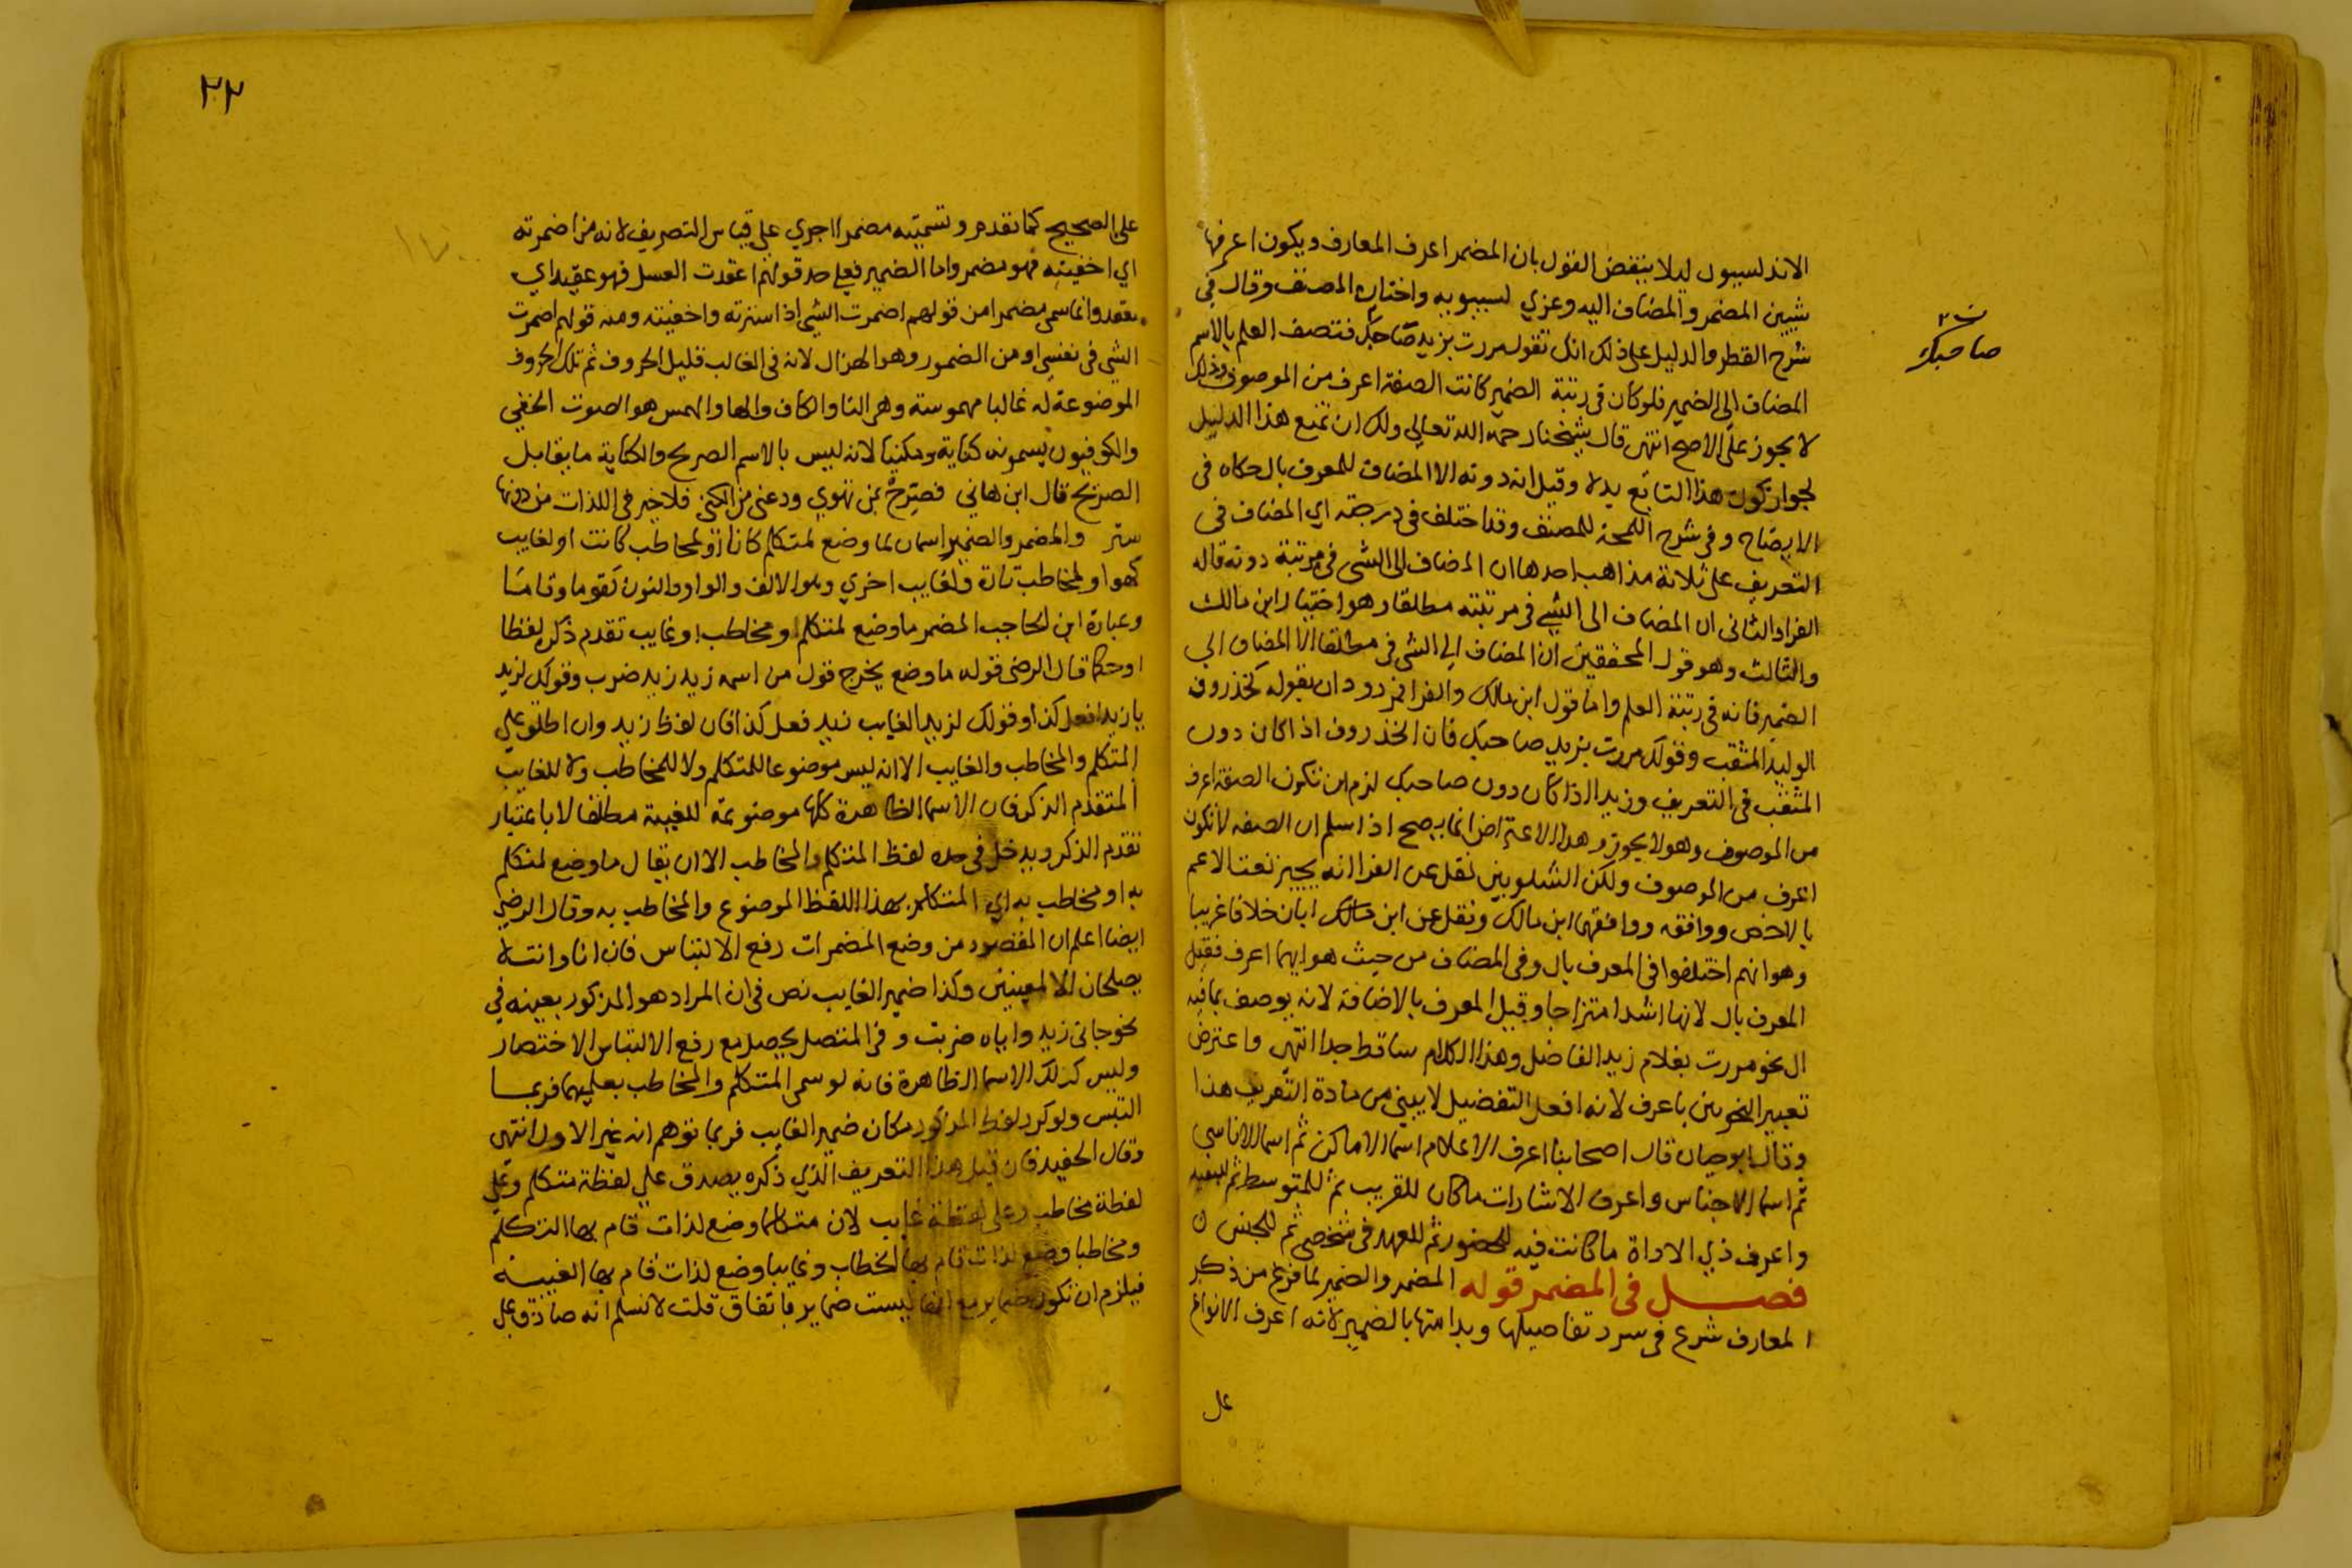 الاندلسيون ليلا ينقض القول بان المضمر اعرف المعارف ويكون اعرفها
شيين المضمر والمضاف اليه وعزي لسيبويه واختاره المصنف وقال في
شرح القطر والدليل على ذلك انك تقول مررت بزيد صاحبك فتصف العلم بالاسم
المضاف الى الضمير فلو كان في رتبة الضمير كانت الصفة اعرف من الموصوف وذلك
لا يجوز على الاصح انتهى قال شيخنا رحمه الله تعالى ولك ان تمنع هذا الدليل
لجواز كون هذا التابع بدلا وقيل انه دونه الا المضاف للمعرف بال حكاه في
الايضاح وفي شرح اللمحة للمصنف وقد اختلف في درجته اي المضاف في
التعريف على ثلاثة مذاهب احدها ان المضاف الى الشي في مرتبة دونه قاله
الفرا والثاني ان المضاف الى الشي في مرتبته مطلقا وهو اختيار ابن مالك
والثالث وهو قول المحققين ان المضاف الى الشي في مطلقا الا المضاف الي
الضمير فانه في رتبة العلم واما قول ابن مالك والفرا فمردودان بقوله كخذروف
الوليد المثقب وقولك مررت بزيد صاحبك فان الخذروف اذا كان دون
المثقب في التعريف وزيدا اذا كان دون صاحبك لزم ان تكون الصفة اعرف
من الموصوف وهو لا يجوز وهذا الاعتراض انما يصح اذا سلم ان الصفه لا تكون
اعرف من الموصوف ولكن الشلوبين نقل عن الفرا انه يجيز نعت الاعم
بالاخص ووافقه ووافقهما ابن مالك ونقل عن ابن مالك ابان خلافا غريبا
وهو انهم اختلفوا في المعرف بال وفي المضاف من حيث هو ايهما اعرف فقيل
المعرف بال لانها اشد امتزاجا وقيل المعرف بالاضافة لانه يوصف بما فيه
ال نحو مررت بغلام زيد الفاضل وهذا الكلام ساقط جدا انتهى واعترض
تعبير النحويين باعرف لانه افعل التفضيل لا يبنى من مادة التعريف هذا
وقال ابو حيان قال اصحابنا اعرف الاعلام اسما الاماكن ثم اسما الاناسي
ثم اسما الاجناس واعرف الاشارات ما كان للقريب ثم للمتوسط ثم للبعيد
واعرف ذي الاداة ما كانت فيه للحضور ثم للعهد في شخص ثم للجنس
فصل في المضمر قوله المضمر والضمير لما فرغ من ذكر
المعارف شرع في سرد تفاصيلها وبدا منها بالضمير لانه اعرف الانواع
على
صاحبك
٢٢
على الصحيح كما تقدم وتسميته مضمرا اجري على قياس التصريف لانه من اضمرته
اي اخفيته فهو مضمر واما الضمير فعلى حد قولهم اعقدت العسل فهو عقيد اي
معقد وانما سمي مضمرا من قولهم اضمرت الشي اذا سترته واخفيته ومنه قولهم اضمرت
الشي في نفسي او من الضمور وهو الهزال لانه في الغالب قليل الحروف ثم تلك الحروف
الموضوعة له غالبا مهموسة وهي التا والكاف والها والهمس هو الصوت الخفي
والكوفيون يسمونه كناية ومكنيا لانه ليس بالاسم الصريح والكناية ما يقابل
الصريح قال ابن هاني فصرح بمن تهوي ودعني من الكنى فلا خير في اللذات من دونها
ستر والمضمر والضمير اسمان لما وضع لمتكلم كانا او لمخاطب كانت او لغايب
كهو او لمخاطب تارة ولغايب اخري وهو الالف والواو والنون كقوما وقاما
وعبارة ابن الحاجب المضمر ما وضع لمتكلم او مخاطب او غايب تقدم ذكره لفظا
او حكما قال الرضي قوله ما وضع يخرج قول من اسمه زيد زيد ضرب وقولك لزيد
يا زيد افعل كذا وقولك لزيد الغايب زيد فعل كذا فان لفظ زيد وان اطلق على
المتكلم والمخاطب والغايب الا انه ليس موضوعا للمتكلم ولا للمخاطب ولا للغايب
المتقدم الذكر فان الاسما الظاهرة كلها موضوعة للغيبة مطلقا لا باعتبار
تقدم الذكر ويدخل في حده لفظ المتكلم والمخاطب الا ان يقال ما وضع لمتكلم
به او مخاطب به اي المتكلم بهذا اللفظ الموضوع والمخاطب به وقال الرضي
ايضا اعلم ان المقصود من وضع المضمرات رفع الالتباس فان انا وانت لا
يصلحان الا لمعينين وكذا ضمير الغايب نص في ان المراد هو المذكور بعينه في
نحو جاني زيد واياه ضربت وفي المتصل يحصل مع رفع الالتباس الاختصار
وليس كذلك الاسما الظاهرة فانه لو سمى المتكلم والمخاطب بعلميهما فربما
التبس ولو كرر لفظ المذكور مكان ضمير الغايب فربما توهم انه غير الاول انتهى
وقال الحفيد فان قيل هذا التعريف الذي ذكره يصدق على لفظة متكلم وعلى
لفظة مخاطب وعلى لفظة غايب لان متكلما وضع لذات قام بها التكلم
ومخاطبا وضع لذات قام بها الخطاب وغايبا وضع لذات قام بها الغيبة
فيلزم ان تكون ضماير مع انها ليست ضماير باتفاق قلت لا نسلم انه صادق على